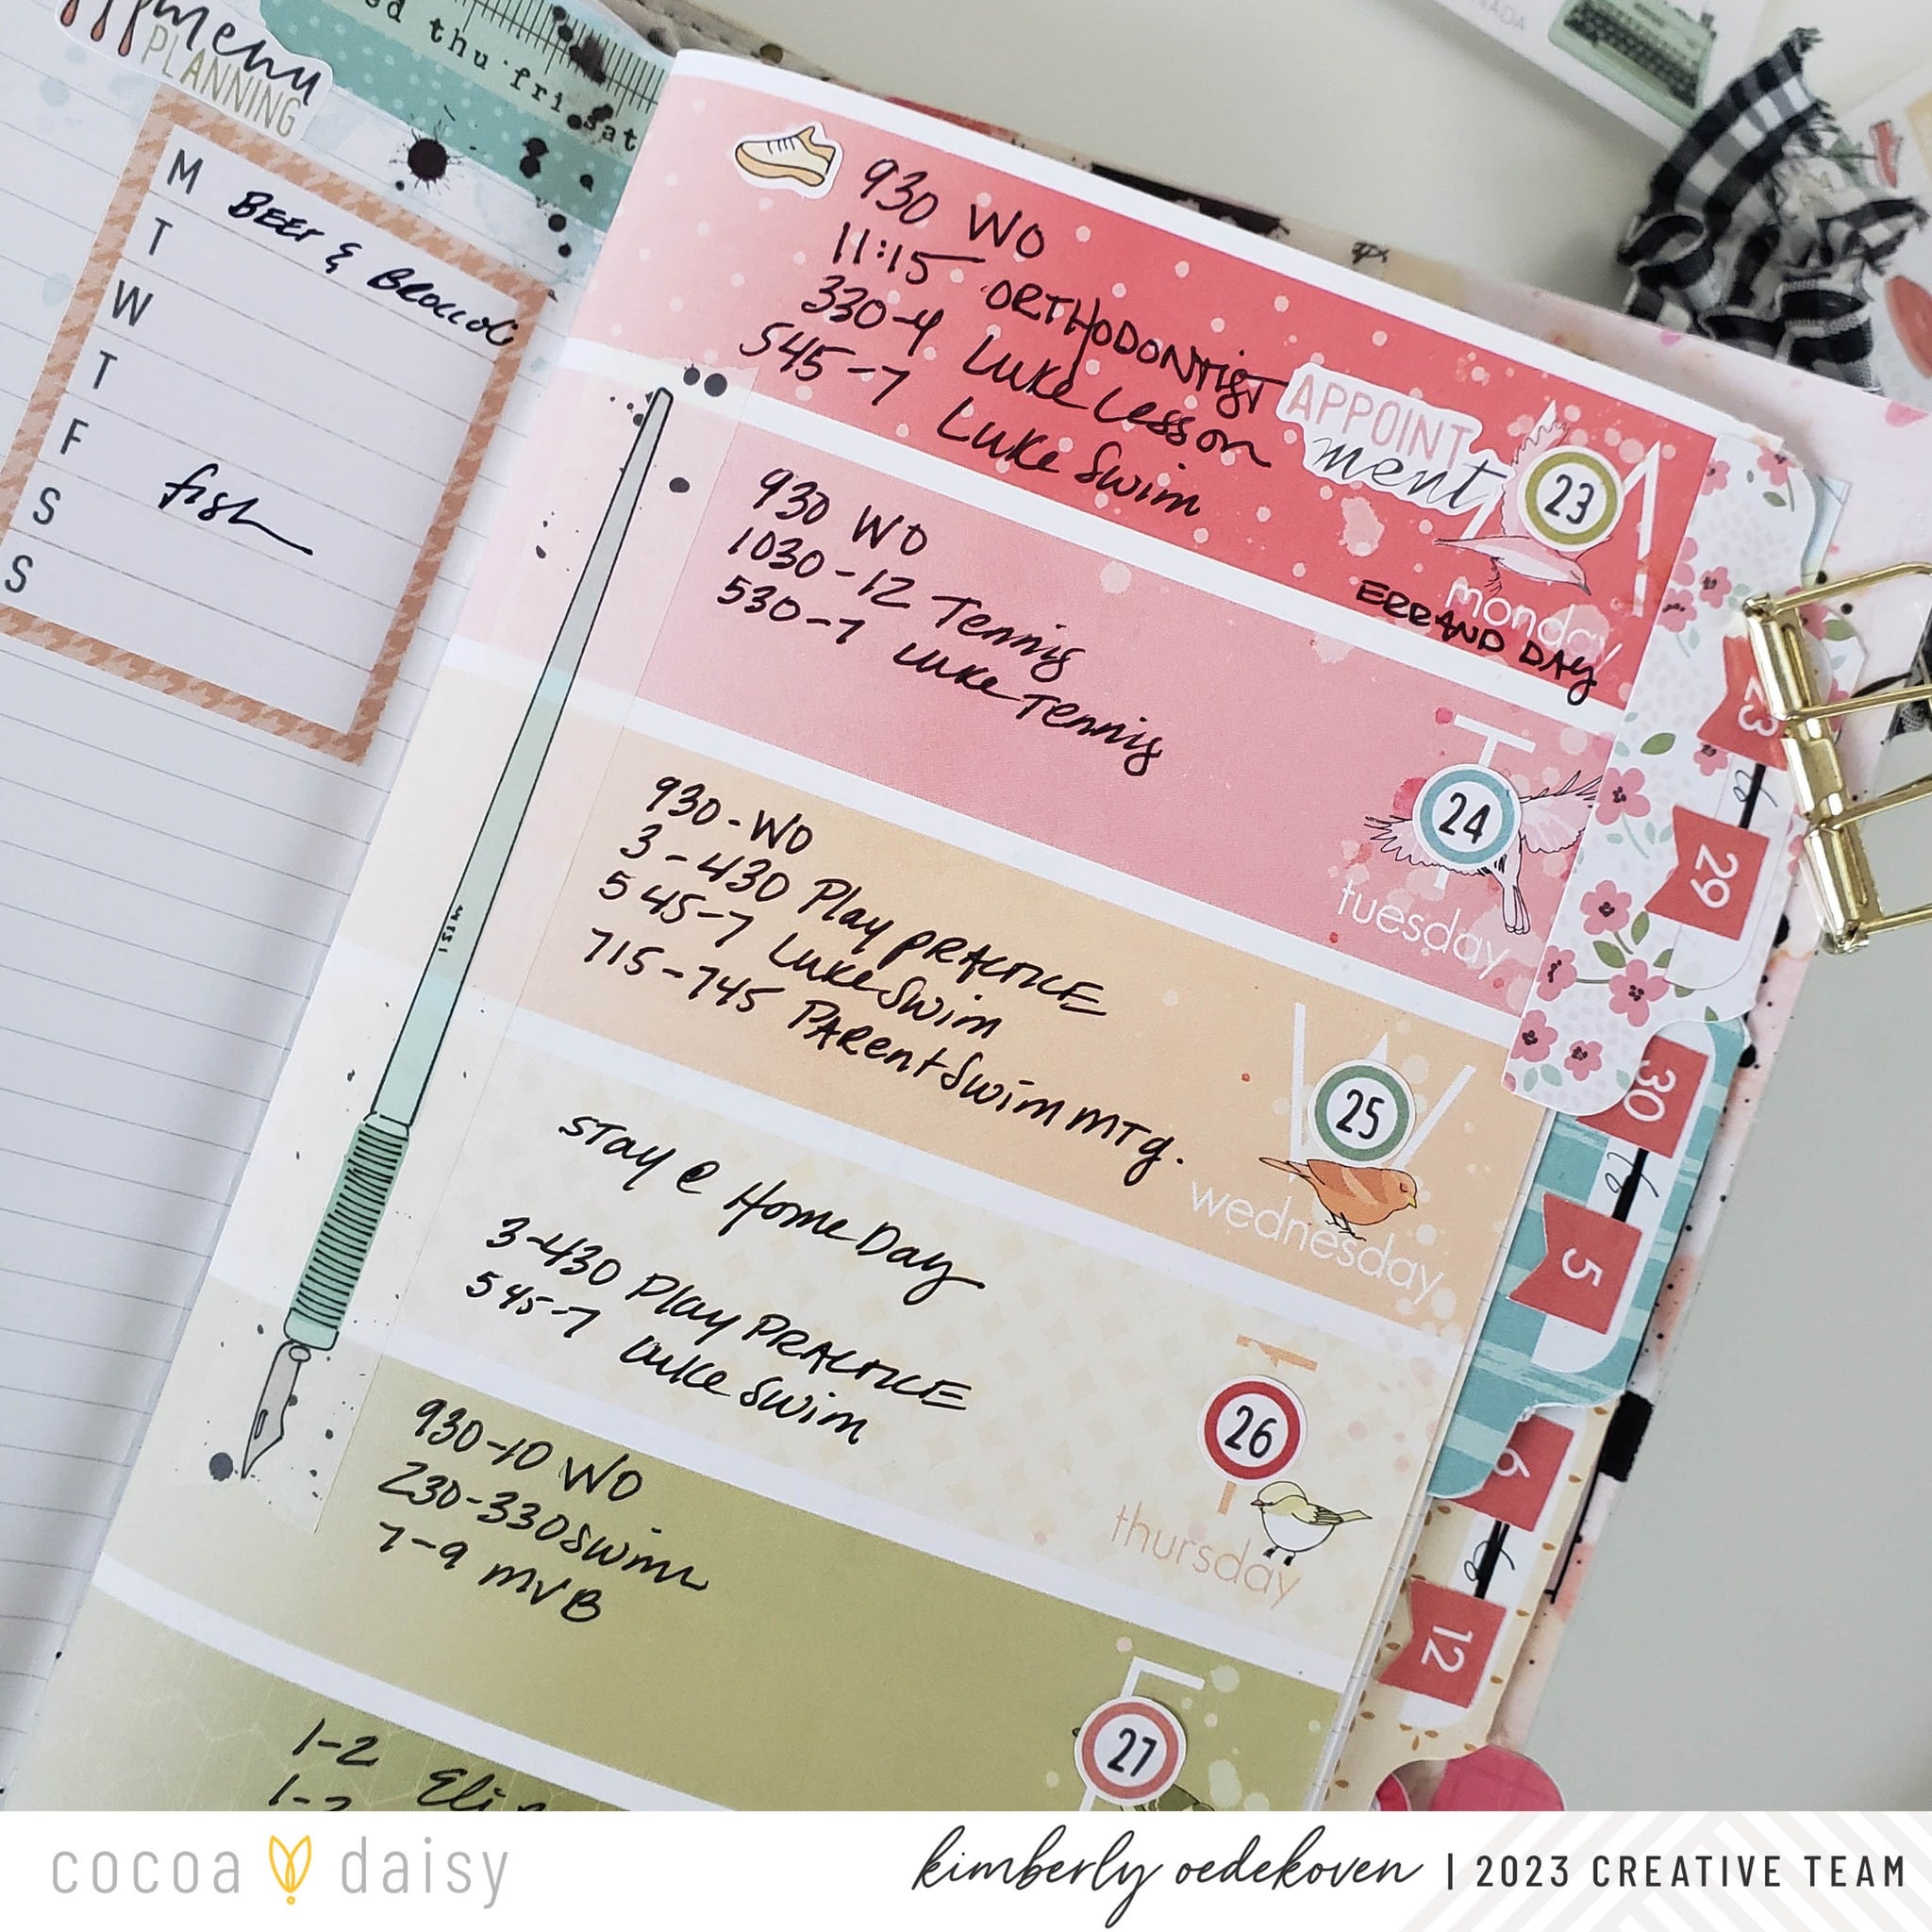 menu
PLANNING
ed thu·fri·sat
M BEEF & BROCCOLI
T
W
T
F fish
S
S
930 WO
11:15 ORTHODONTIST
330-4 Luke Lesson
545-7 Luke Swim
APPOINT
ment
23
M
monday
ERRAND DAY
930 WO
1030-12 Tennis
530-7 Luke Tennis
T
24
tuesday
930-WO
3-430 Play PRACTICE
545-7 Luke Swim
715-745 PARent Swim mTg.
W
25
wednesday
STay @ Home Day
3-430 Play PRACTICE
545-7 Luke Swim
T
26
thursday
930-10 WO
230-330 Swim
7-9 MVB
F
27
1-2 Eli
23
to
29
30
to
5
6
to
12
cocoa daisy
kimberly oedekoven | 2023 CREATIVE TEAM